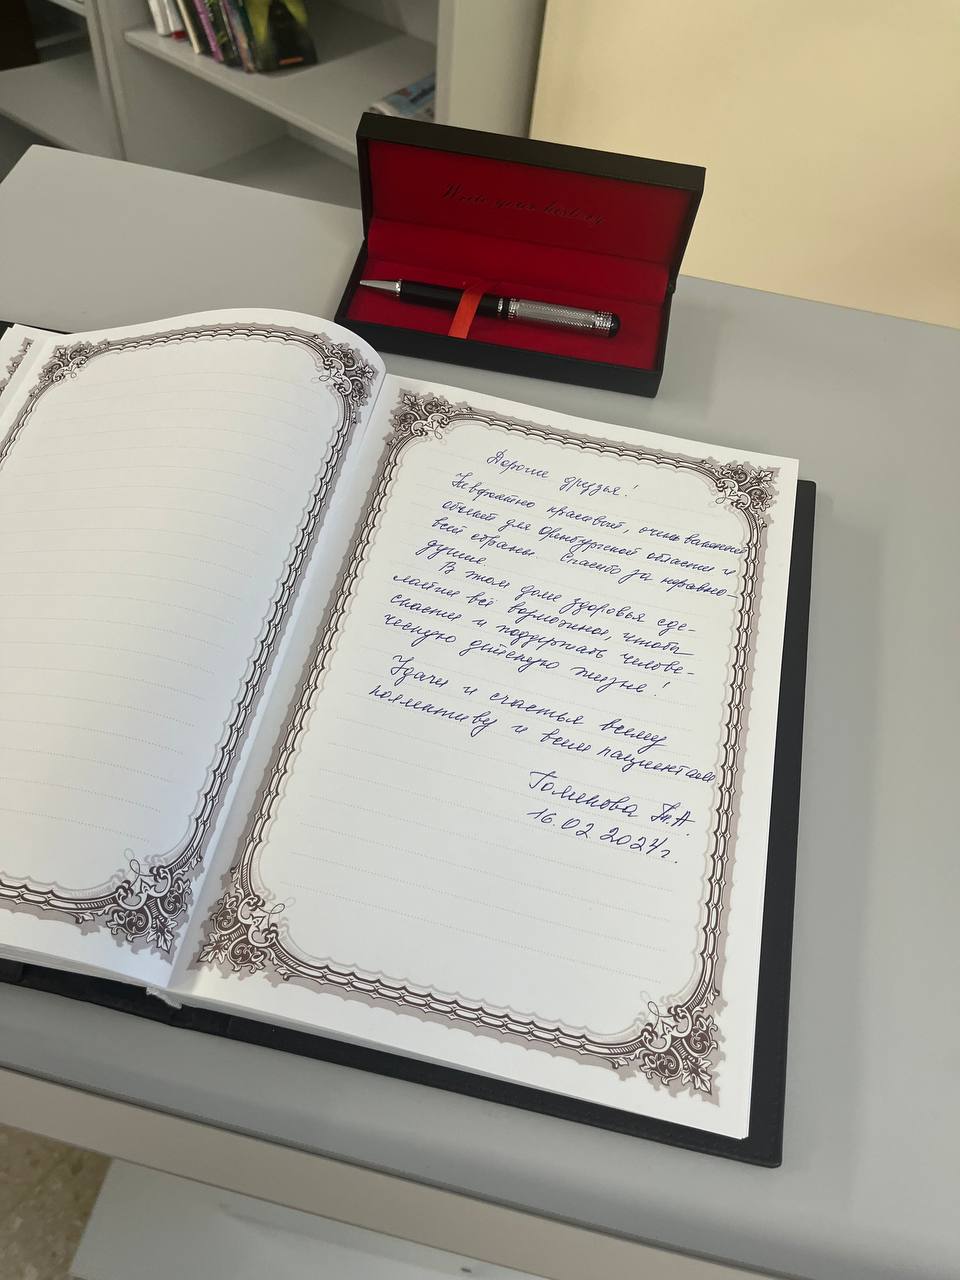 Write your history
Дорогие друзья!
Невероятно красивый, очень важный
объект для Оренбургской области и
всей страны. Спасибо за неравно-
душие.
В этом доме здоровья сде-
лайти всё возможное, чтобы
спасти и поддержать челове-
ческую детскую жизнь!
Удачи и счастья всему
коллективу и всем пациентам.
Голикова Т.А.
16.02.2024г.